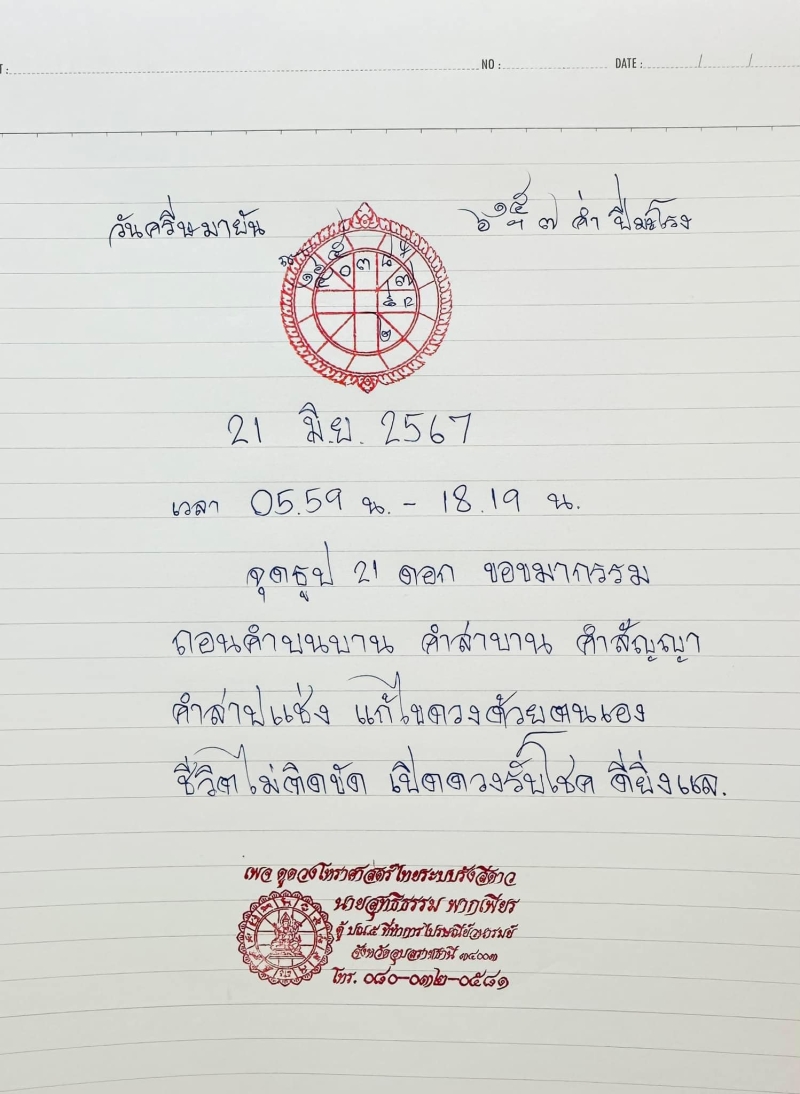 NO : DATE : / /
วันครีษมายัน
๗ ค่ำ ปีมะโรง
21 มิ.ย. 2567
เวลา 05.59 น. - 18.19 น.
จุดธูป 21 ดอก ขอขมากรรม
ถอนคำบนบาน คำสาบาน คำสัญญา
คำสาปแช่ง แก้ไขดวงด้วยตนเอง
ชีวิตไม่ติดขัด เปิดดวงรับโชค ดียิ่งแล.
เพจ ดูดวงโหราศาสตร์ไทยระบบรังสีดาว
นายสุทธิธรรม พากเพียร
ตู้ ปณ.๕ ที่ทำการไปรษณีย์
จังหวัดอุบลราชธานี
โทร. ๐๘๐-๐๓๒-๐๕๘๑